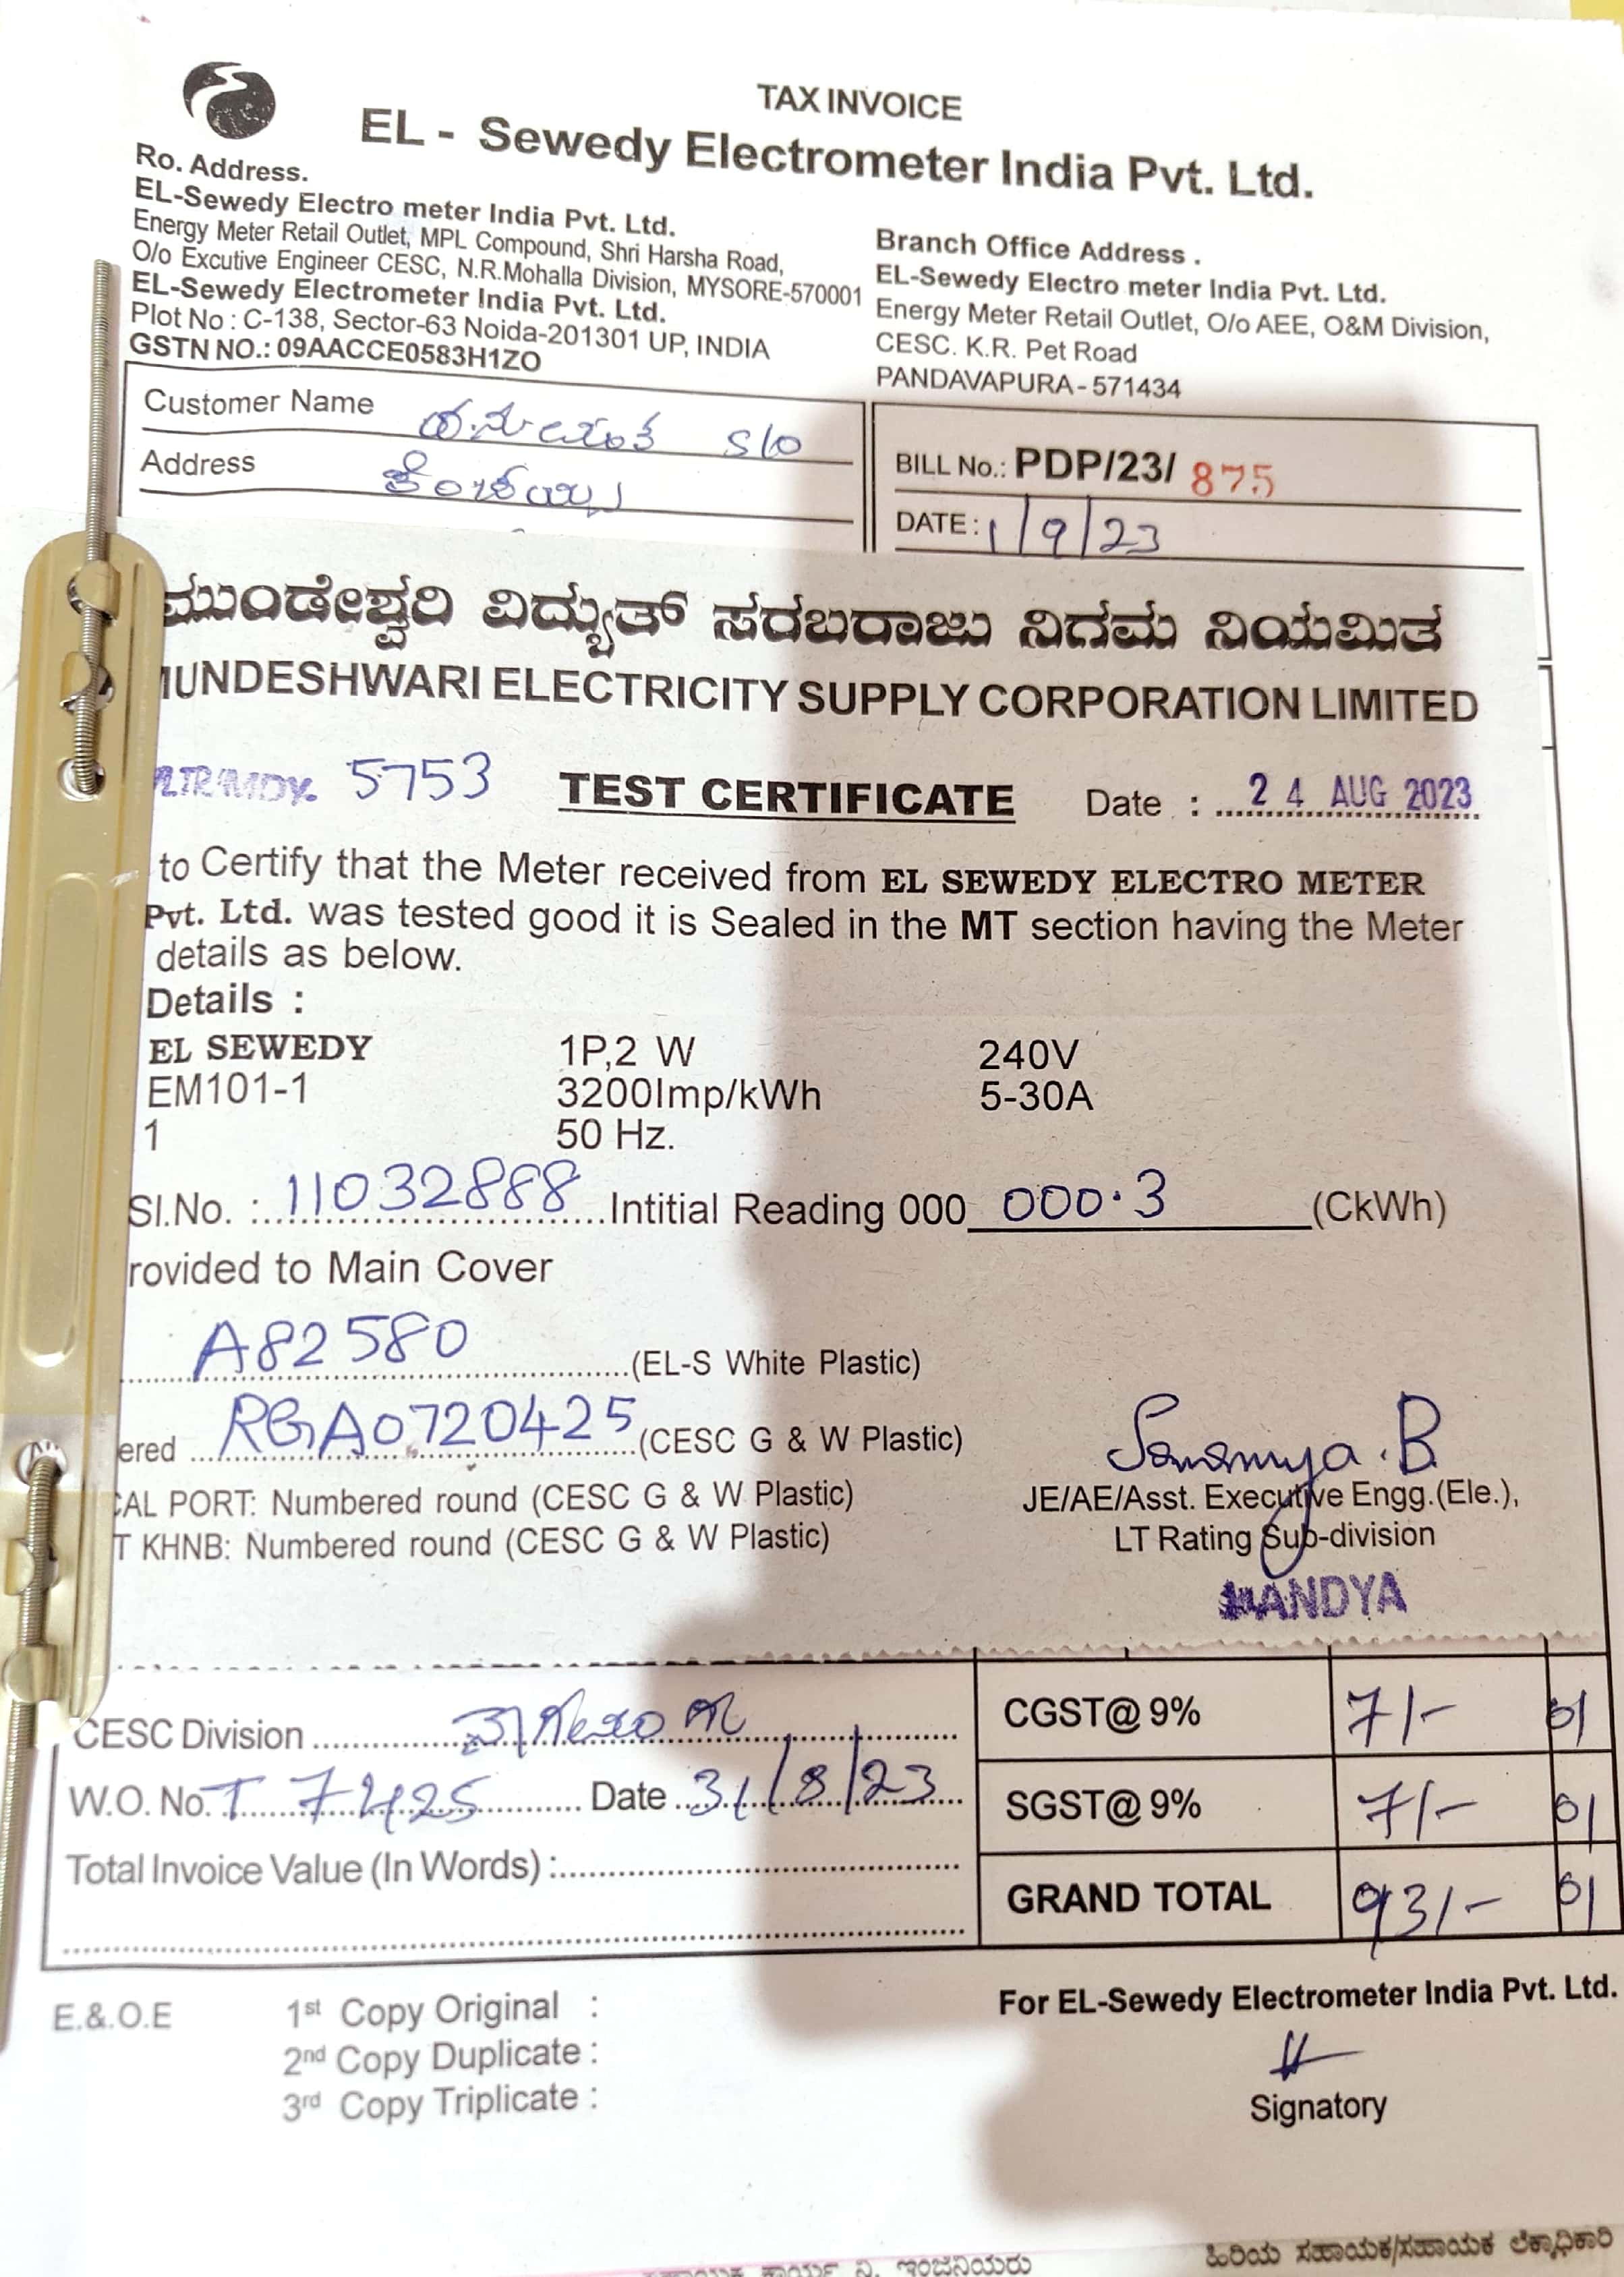 TAX INVOICE
EL - Sewedy Electrometer India Pvt. Ltd.
Ro. Address.
EL-Sewedy Electro meter India Pvt. Ltd.
Energy Meter Retail Outlet, MPL Compound, Shri Harsha Road,
O/o Excutive Engineer CESC, N.R.Mohalla Division, MYSORE-570001
EL-Sewedy Electrometer India Pvt. Ltd.
Plot No : C-138, Sector-63 Noida-201301 UP, INDIA
GSTN NO.: 09AACCE0583H1ZO
Branch Office Address .
EL-Sewedy Electro meter India Pvt. Ltd.
Energy Meter Retail Outlet, O/o AEE, O&M Division,
CESC. K.R. Pet Road
PANDAVAPURA - 571434
Customer Name S/o
Address
BILL No.: PDP/23/ 875
DATE : 1/9/23
ಮುಂಡೇಶ್ವರಿ ವಿದ್ಯುತ್ ಸರಬರಾಜು ನಿಗಮ ನಿಯಮಿತ
MUNDESHWARI ELECTRICITY SUPPLY CORPORATION LIMITED
5753 TEST CERTIFICATE Date : 24 AUG 2023
to Certify that the Meter received from EL SEWEDY ELECTRO METER
Pvt. Ltd. was tested good it is Sealed in the MT section having the Meter
details as below.
Details :
EL SEWEDY 1P,2 W 240V
EM101-1 3200Imp/kWh 5-30A
1 50 Hz.
Sl.No. : 11032888 Intitial Reading 000 000.3 (CkWh)
rovided to Main Cover
A82580 (EL-S White Plastic)
ered RGA0720425 (CESC G & W Plastic)
CAL PORT: Numbered round (CESC G & W Plastic)
T KHNB: Numbered round (CESC G & W Plastic)
JE/AE/Asst. Executive Engg.(Ele.),
LT Rating Sub-division
MANDYA
CESC Division
W.O. No. T 7425 Date 31/8/23
Total Invoice Value (In Words) :
CGST@ 9% 71/- 01
SGST@ 9% 71/- 01
GRAND TOTAL 931/- 01
E.&.O.E
1st Copy Original :
2nd Copy Duplicate :
3rd Copy Triplicate :
For EL-Sewedy Electrometer India Pvt. Ltd.
Signatory
ಹಿರಿಯ ಸಹಾಯಕ/ಸಹಾಯಕ ಲೆಕ್ಕಾಧಿಕಾರಿ